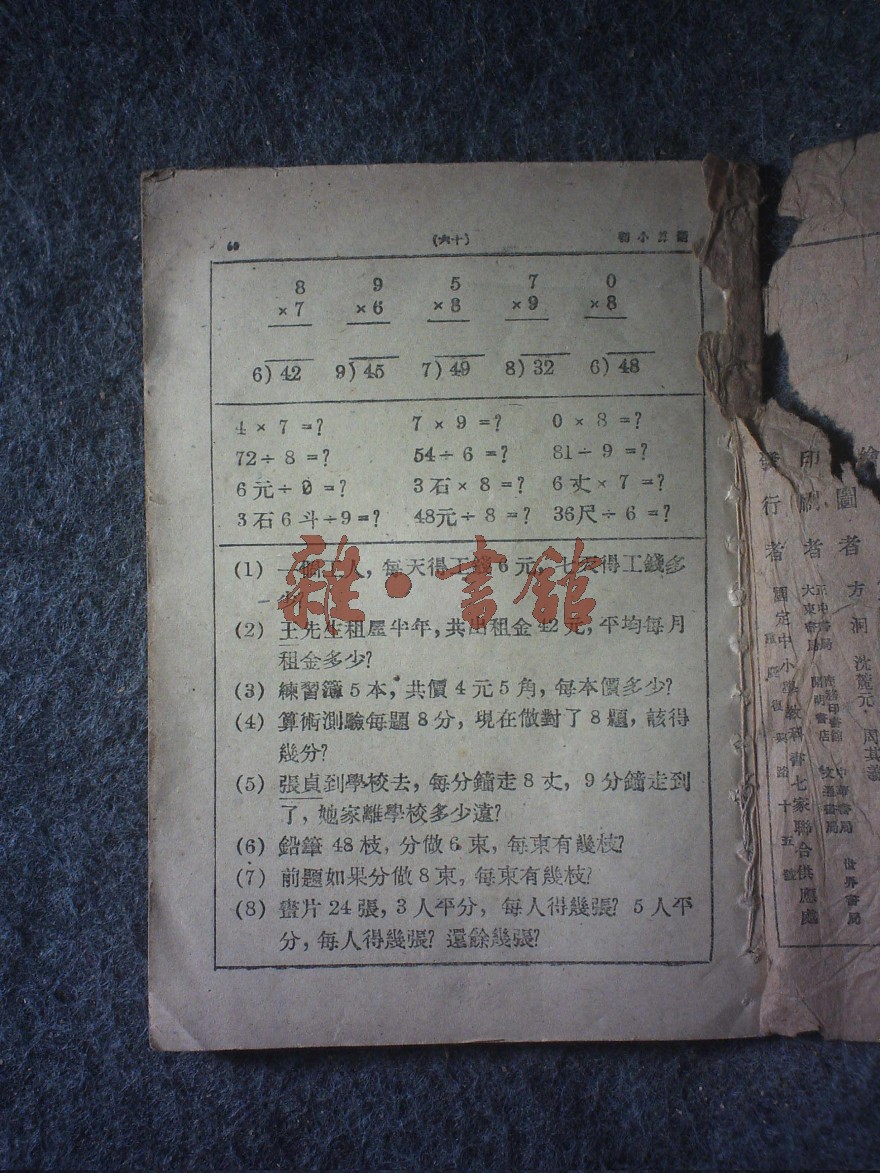 60 (十六) 初小算
8 9 5 7 0
×7 ×6 ×8 ×9 ×8
6)42 9)45 7)49 8)32 6)48
4×7=? 7×9=? 0×8=?
72÷8=? 54÷6=? 81÷9=?
6元÷ =? 3石×8=? 6丈×7=?
3石6斗÷9=? 48元÷8=? 36尺÷6=?
(1) 一個工人,每天得工錢6元,七天得工錢多
少?
(2) 王先生租屋半年,共出租金42元,平均每月
租金多少?
(3) 練習簿5本,共價4元5角,每本價多少?
(4) 算術測驗每題8分,現在做對了8題,該得
幾分?
(5) 張貞到學校去,每分鐘走8丈,9分鐘走到
了,她家離學校多少遠?
(6) 鉛筆48枝,分做6束,每束有幾枝?
(7) 前題如果分做8束,每束有幾枝?
(8) 畫片24張,3人平分,每人得幾張?5人平
分,每人得幾張?還餘幾張?
雜·書館
繪圖者 方洞 沈麓元
印刷者 正中書局 商務印書館 中華書局 世界書局
大東書局 開明書店
發行者 國定中小學教科書七家聯合供應處
復興路十五號